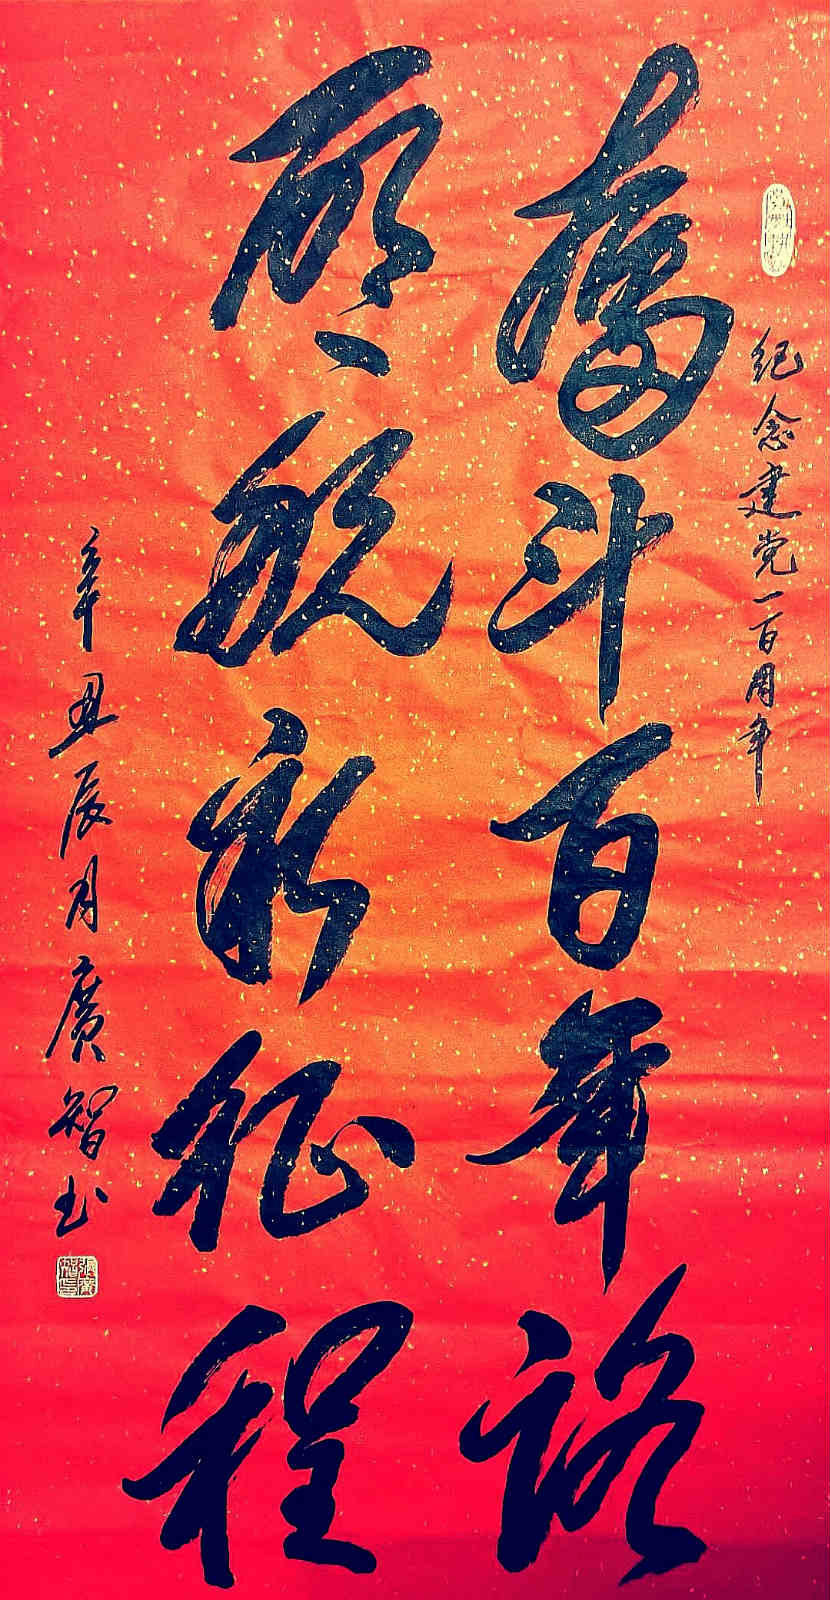 纪念建党一百周年
奮斗百年路
启航新征程
辛丑辰月廣智书